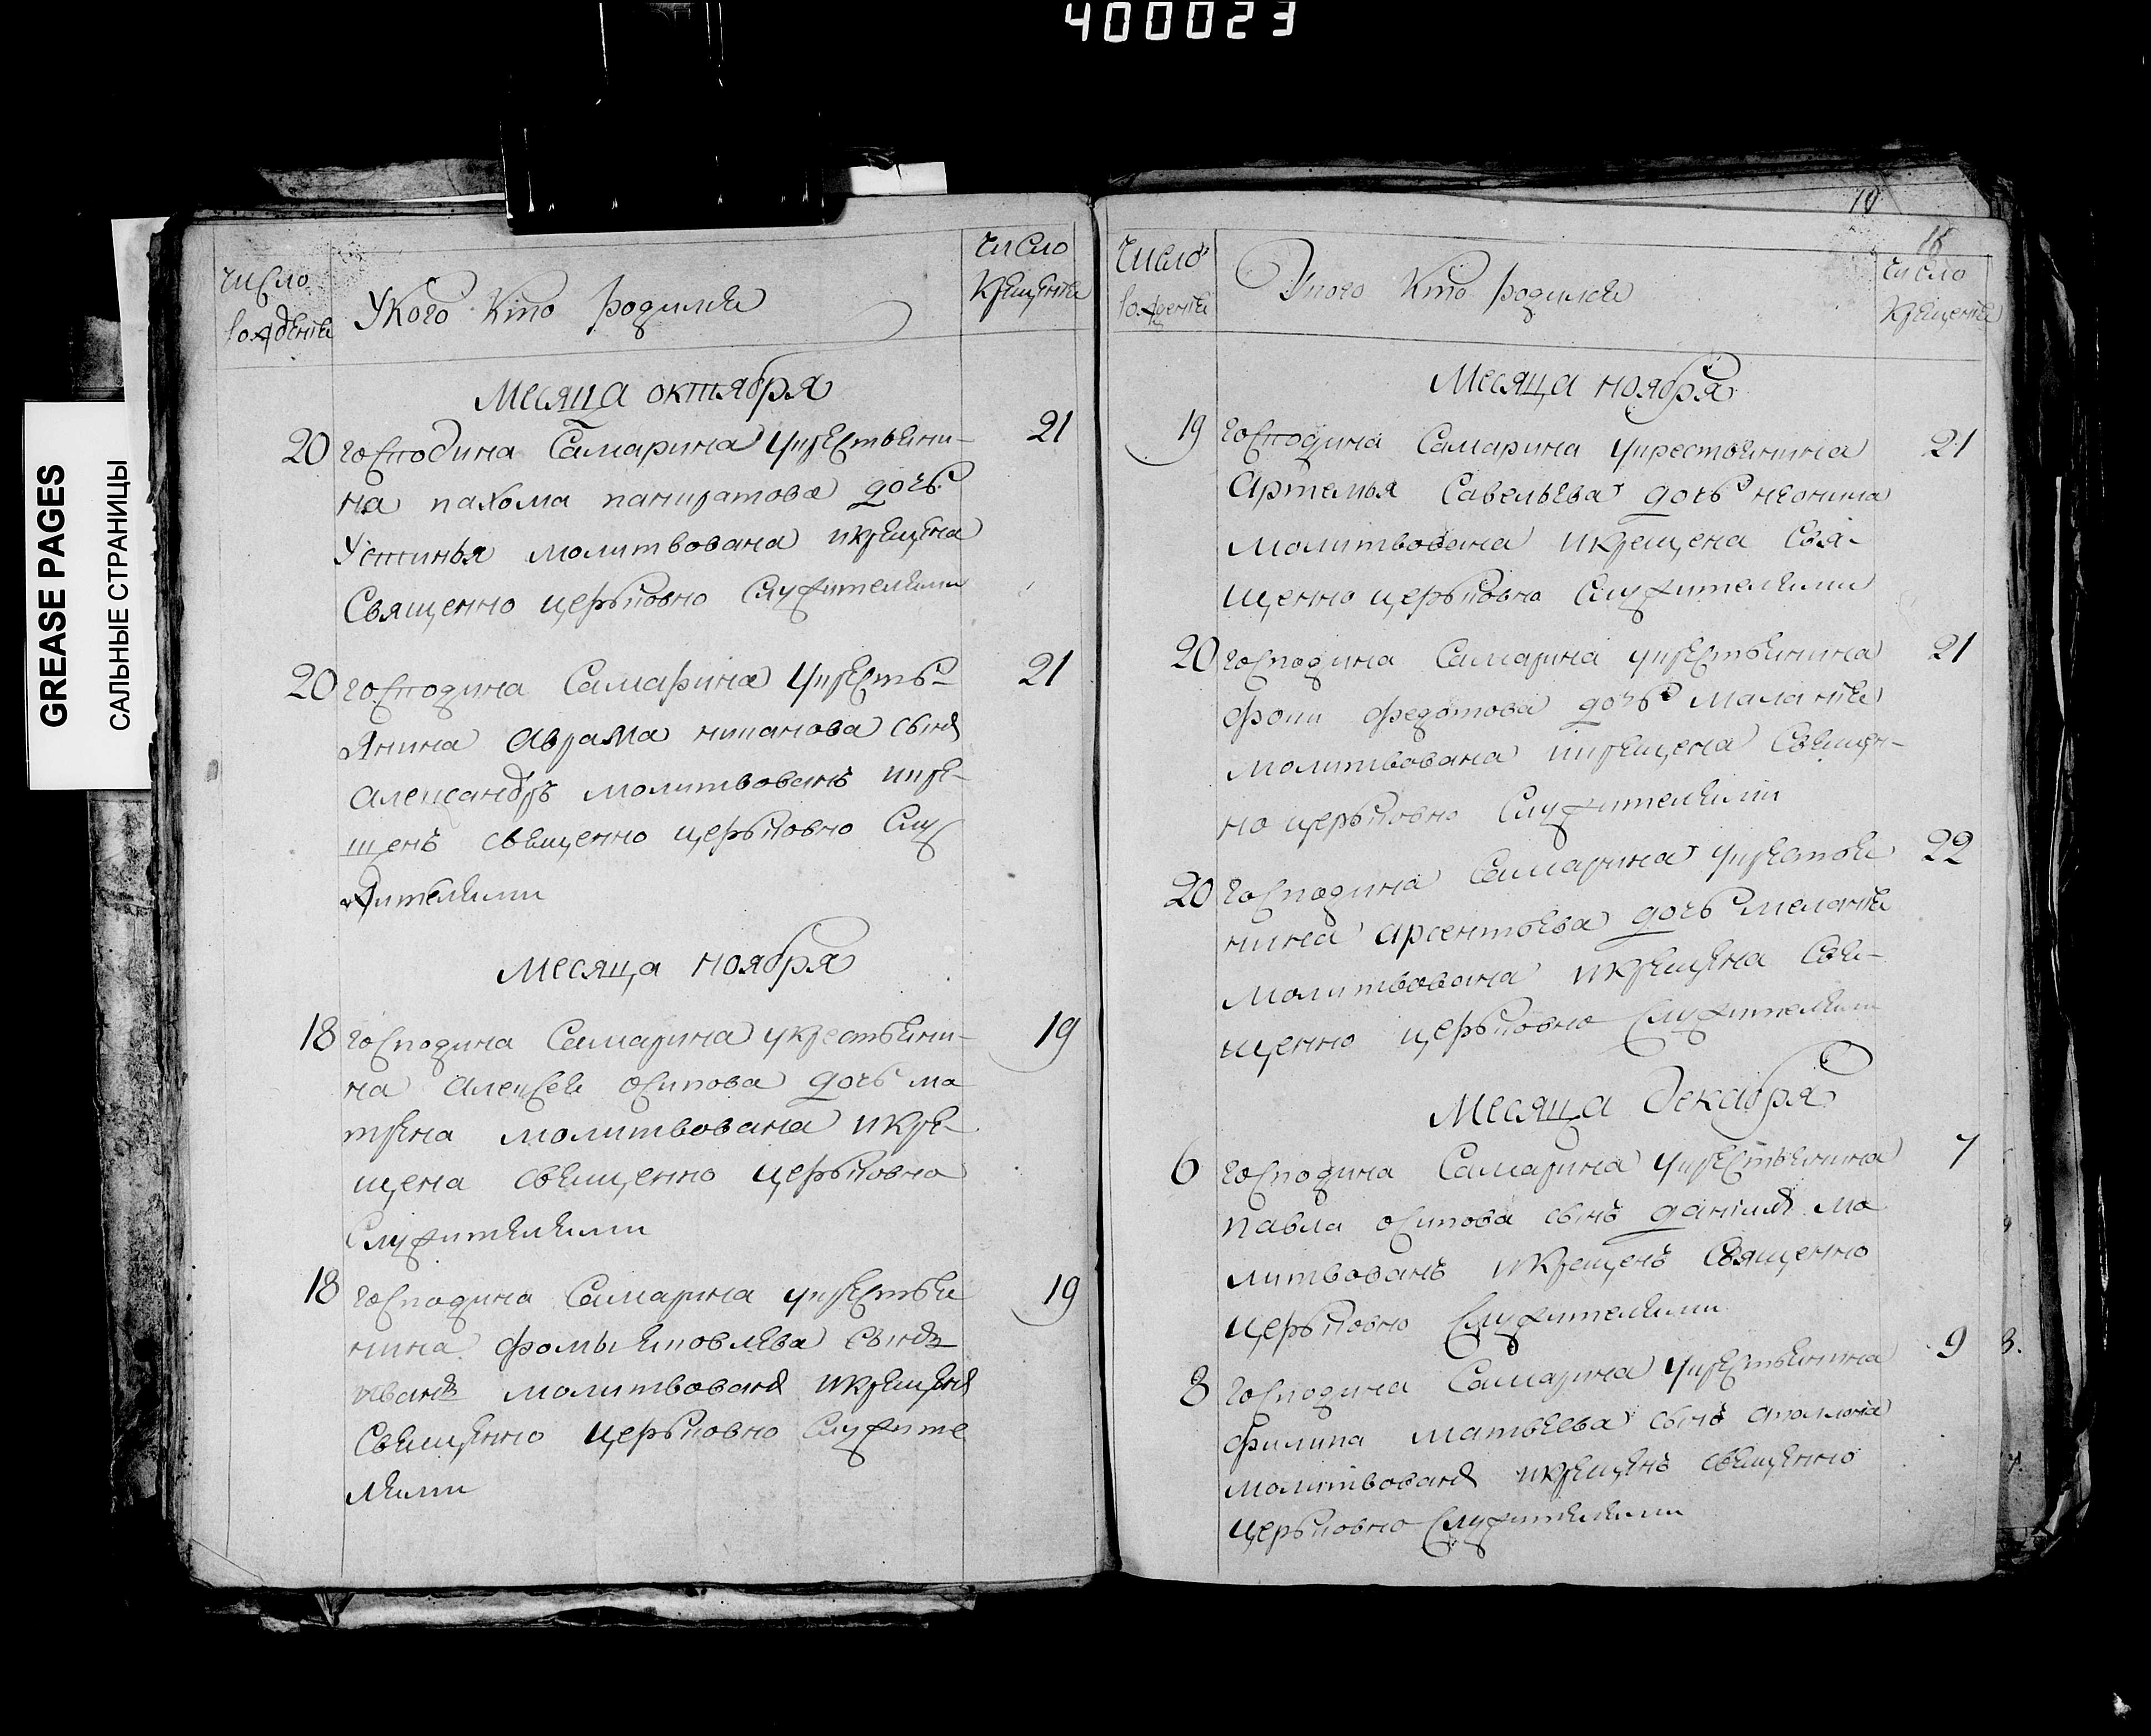 400023
GREASE PAGES
САЛЬНЫЕ СТРАНИЦЫ
число
рождения
Укого кто родился
число
крещения
Месяца октября
20 господина Самарина укрестьяни- 21
на пахома панкратова дочь
Устинья молитвована икрещена
Священно церьковно служителями
20 господина Самарина укресть- 21
янина Аврама сынъ
Александръ молитвованъ икре-
щенъ священно церьковно слу
жителями
Месяца ноября
18 господина Самарина укрестьяни- 19
на Алексея осипова дочь ма
трена молитвована икре-
щена священно церьковно
Служителями
18 господина Самарина укрестья 19
нина фомы яковлева сынъ
иванъ молитвованъ икрещенъ
Священно церьковно служите
лями
10
число
рождения
Укого кто родился
число
крещения
Месяца ноября
19 господина Самарина укрестьянина 21
Артемья Савельева дочь неонила
молитвована икрещена свя-
щенно церьковно служителями
20 господина Самарина укрестьянина 21
федотова дочь маланья
молитвована икрещена священ-
но церьковно служителями
20 господина Самарина укрестья 22
нина арсентьева дочь меланья
молитвована икрещена свя-
щенно церьковно служителями
Месяца декабря
6 господина Самарина укрестьянина 7
павла осипова сынъ данила мо
литвованъ икрещенъ священно
церьковно служителями
8 господина Самарина укрестьянина 9
филипа матвеева сынъ
молитвованъ икрещенъ священно
церьковно служителями